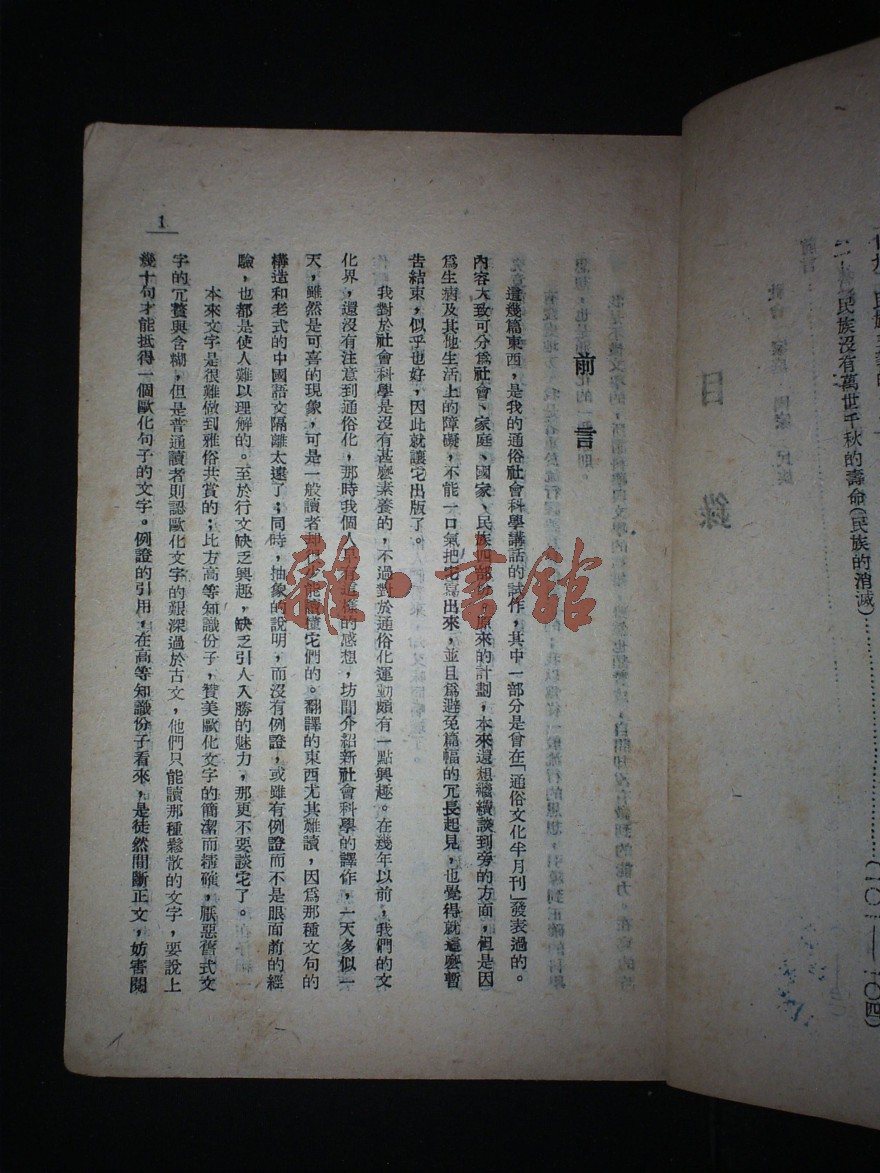 二、民族沒有萬世千秋的壽命(民族的消滅)
目錄
前言
這幾篇東西，是我的通俗社會科學講話的試作，其中一部分是曾在「通俗文化半月刊」發表過的。
內容大致可分爲社會、家庭、國家、民族四部份。原來的計劃，本來還想繼續談到旁的方面，但是因
爲生病及其他生活上的障礙，不能一口氣把它寫出來，並且爲避免篇幅的冗長起見，也覺得就這麽暫
告結束，似乎也好，因此就讓它出版了。
我對於社會科學是沒有甚麽素養的，不過對於通俗化運動頗有一點興趣。在幾年以前，我們的文
化界，還沒有注意到通俗化，那時我個人早有這樣的感想，坊間介紹新社會科學的譯作，一天多似一
天，雖然是可喜的現象，可是一般讀者却很少能讀懂它們的。翻譯的東西尤其難讀，因爲那種文句的
構造和老式的中國語文隔離太遠了；同時，抽象的說明，而沒有例證，或雖有例證而不是眼面前的經
驗，也都是使人難以理解的。至於行文缺乏興趣，缺乏引人入勝的魅力，那更不要談它了。
本來文字是很難做到雅俗共賞的；比方高等知識份子，贊美歐化文字的簡潔而精確，厭惡舊式文
字的冗贅與含糊，但是普通讀者則認歐化文字的艱深過於古文，他們只能讀那種鬆散的文字，要說上
幾十句才能抵得一個歐化句子的文字。例證的引用，在高等知識份子看來，是徒然間斷正文，妨害閱
1
雜·書館